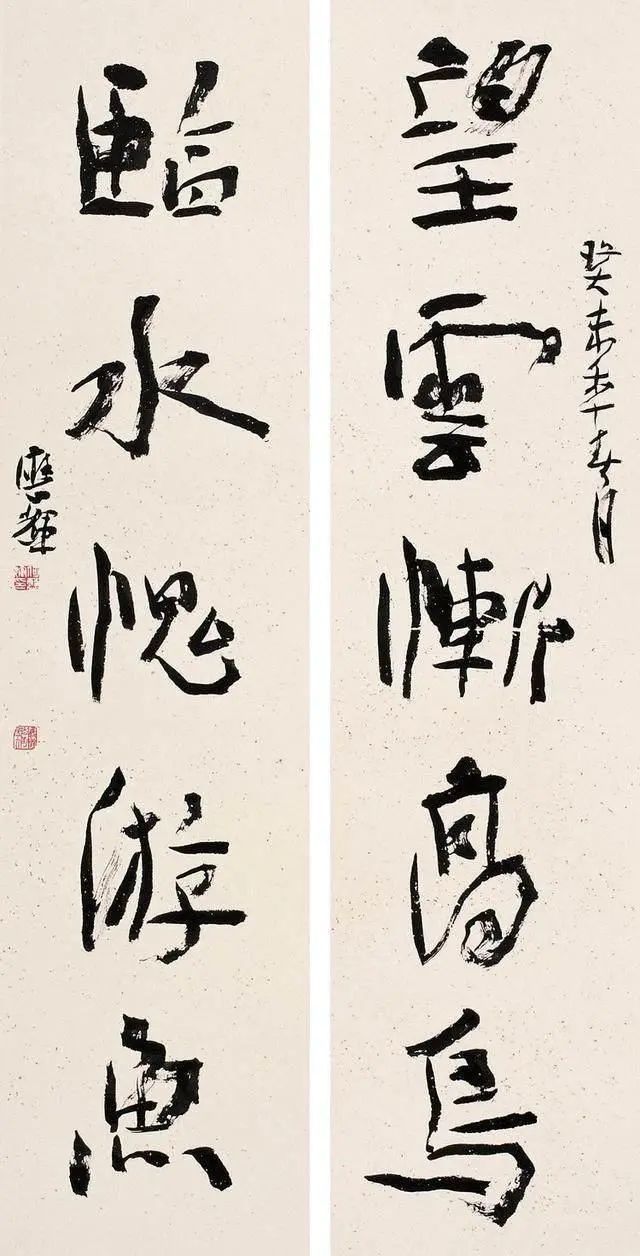 望雲慚高鳥
癸未年春月
臨水愧游魚
應輝